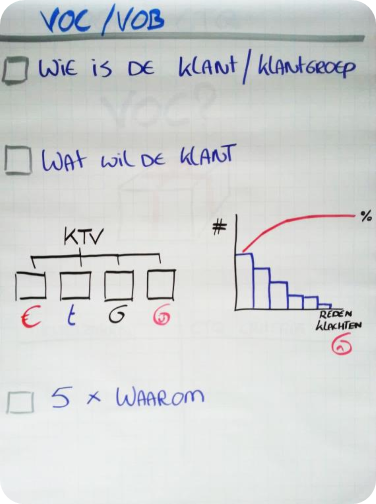 VOC / VOB
WIE IS DE KLANT / KLANTGROEP
WAT WIL DE KLANT
KTV
€ t
# %
REDEN
KLACHTEN
5 x WAAROM